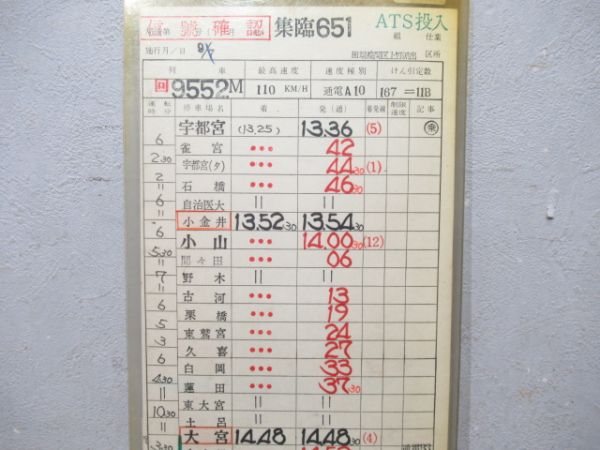 信號確認 集臨651 ATS投入
施行月/日 8/7 区所
列車 最高速度 速度種別 けん引定数
回9552M 110 KM/H 通電A10 167=11B
運転時分 停車場名 着 発(通) 着発線 制限速度 記事
宇都宮 (13.25) 13.36 (5) 乗
6 雀宮 ••• 42
2 30 宇都宮(タ) ••• 44 30 (1)
2 石橋 ••• 46 30
6 自治医大 || ||
|| 小金井 13.52 30 13.54 30
6 小山 ••• 14.00 30 (12)
5 30 間々田 ••• 06
|| 野木 || ||
7 古河 ••• 13
6 栗橋 ••• 19
5 東鷲宮 ••• 24
3 久喜 ••• 27
6 白岡 ••• 33
4 30 蓮田 ••• 37 30
|| 東大宮 || ||
10 30 土呂 || ||
|| 大宮 14.48 14.48 30 (4)
3 30